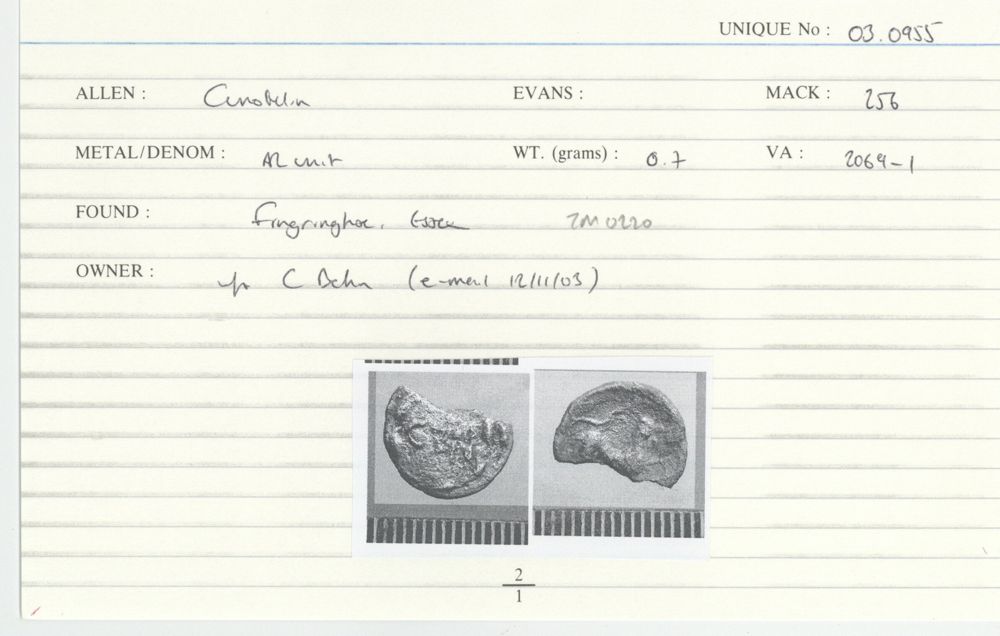 UNIQUE No : 03.0955
ALLEN : Cunobelin EVANS : MACK : 256
METAL/DENOM : AR unit WT. (grams) : 0.7 VA : 2069-1
FOUND : Fingringhoe, Essex TM 0220
OWNER : C Behn (e-mail 12/11/03)
2
1